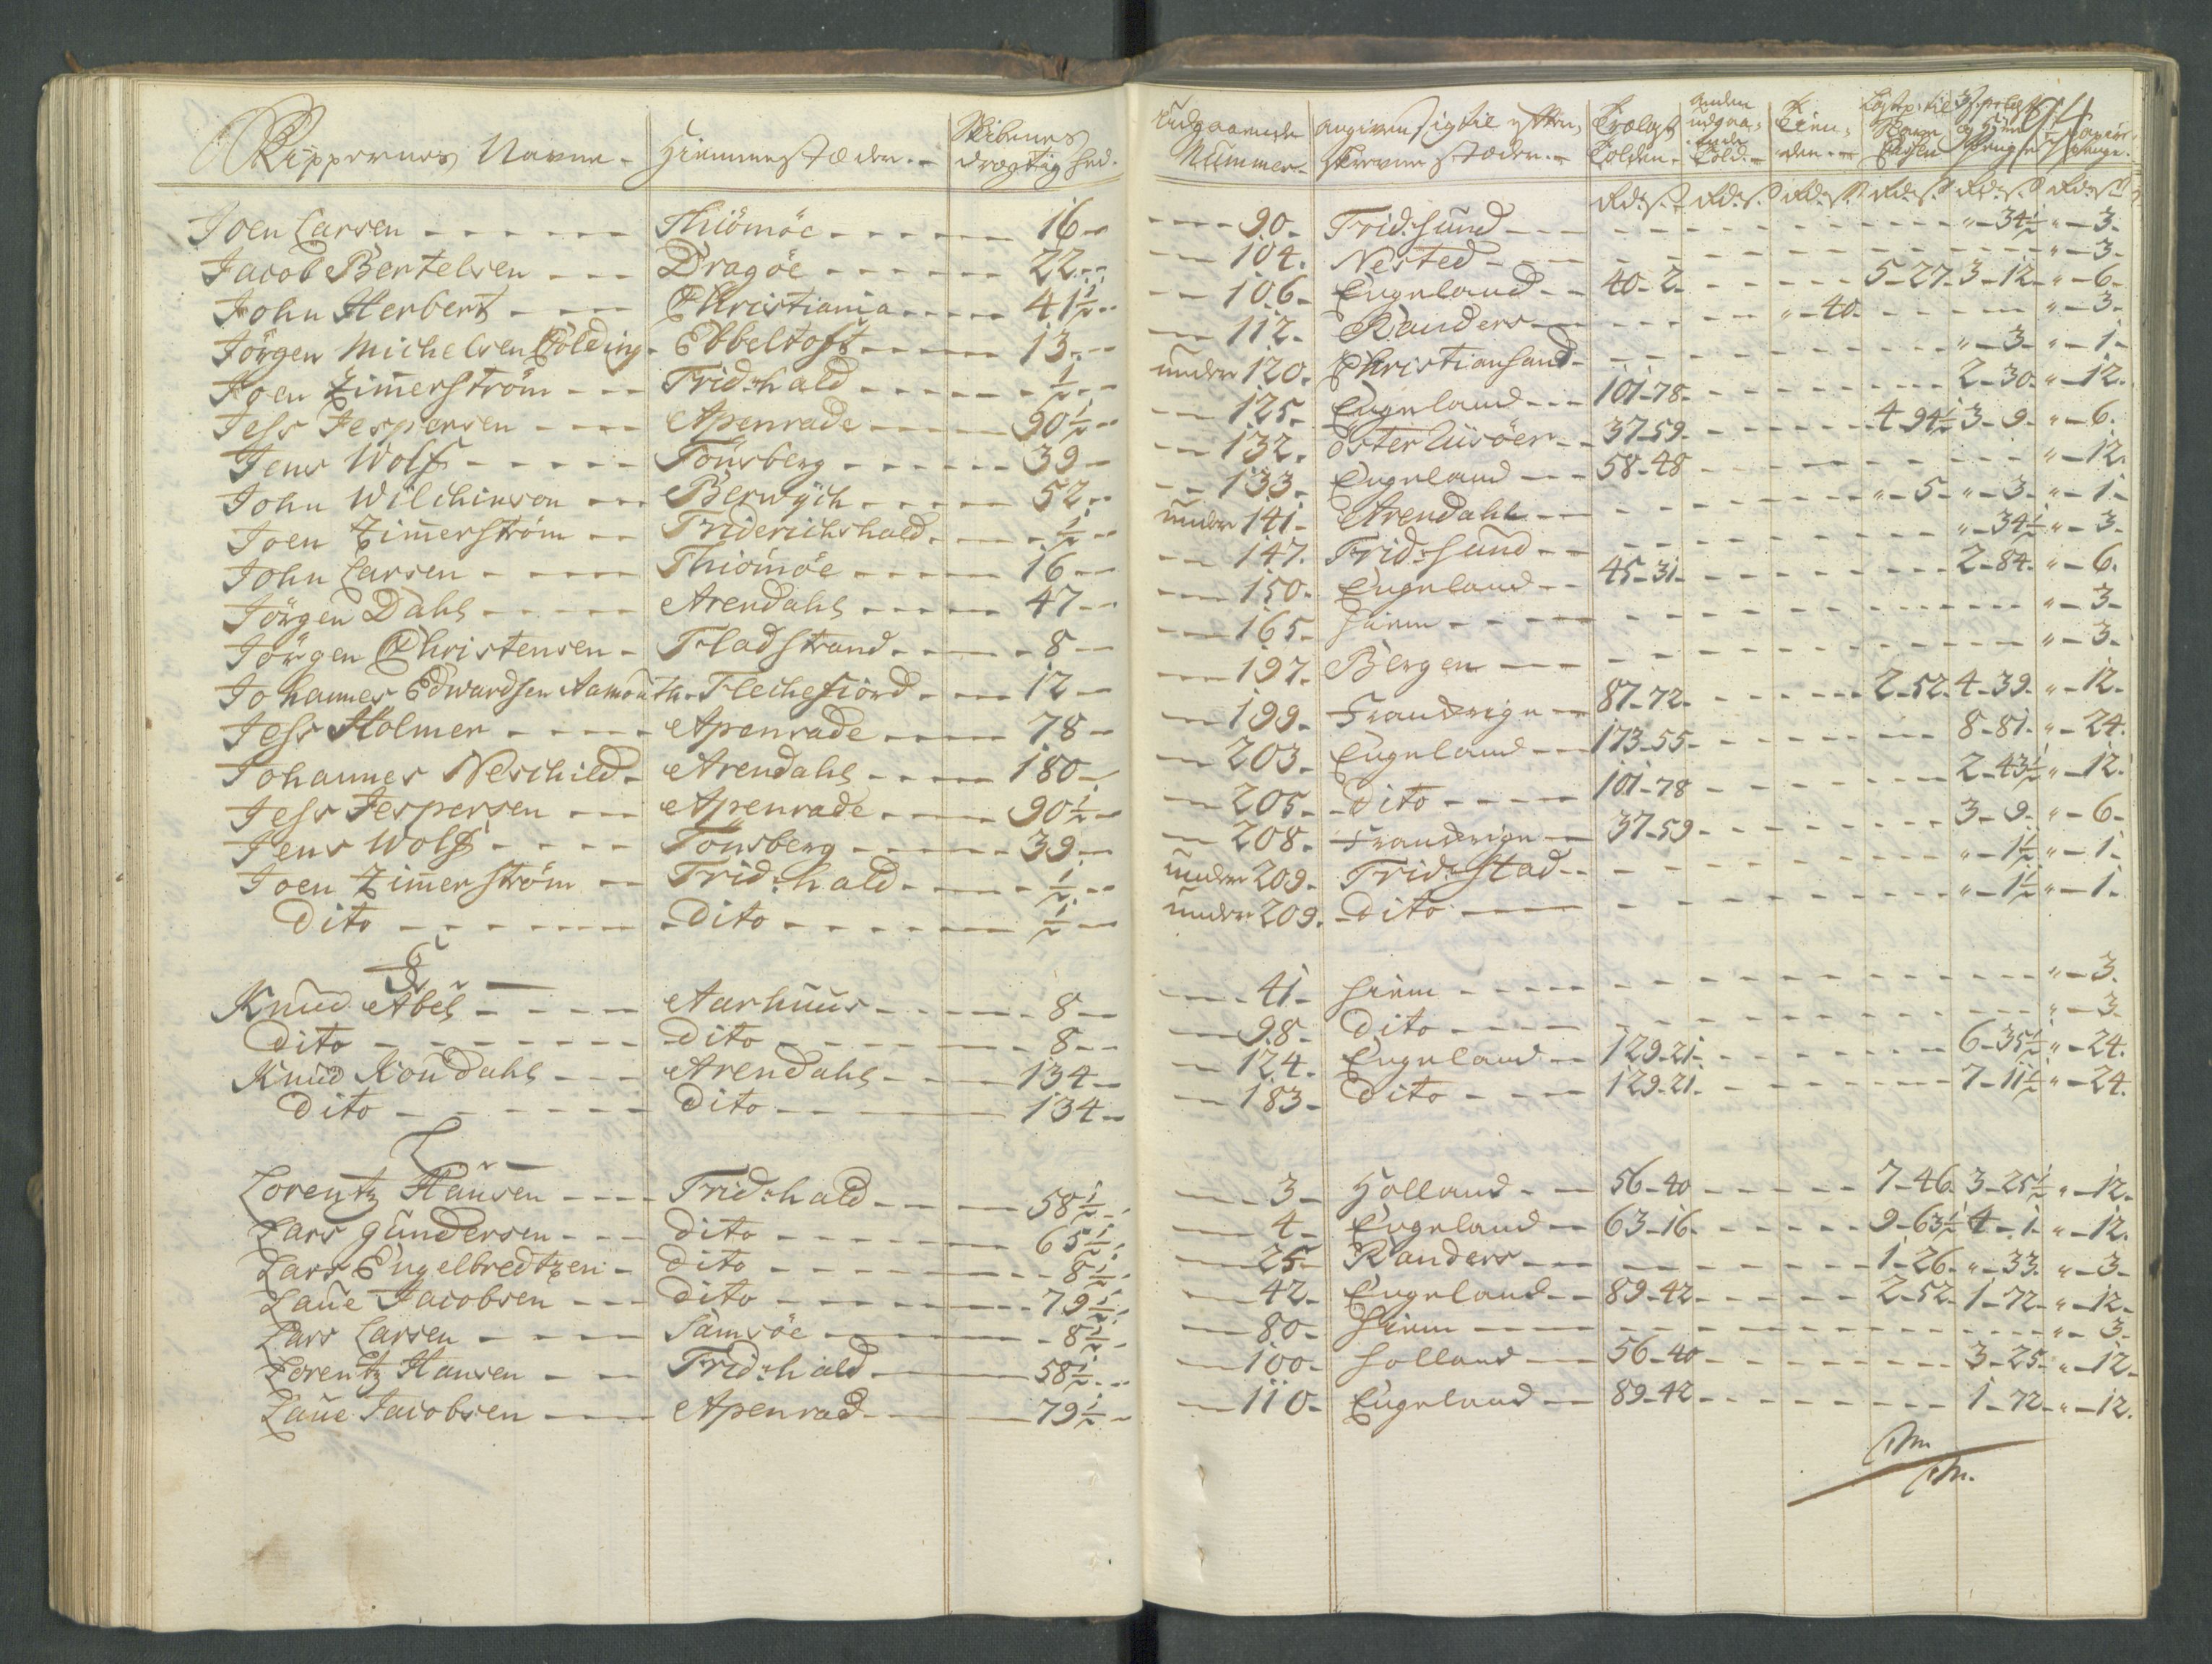 Skippernes Navne - Hiemmestæder. - Skibenes drægtighed. Udgaaende Nummer - angiven sig til efterskrevne stæder. - Trælast Tolden. anden udgaaende Told. - Tien-den -
Rdr. s. Rdr. s. Rdr. s. Rdr. s. Rdr. s. Rdr. s.
Joen Larsen - Thiömöe - 16 - 90 - Frid:sund - " - 34½ " - 3.
Jacob Bertelsen - Dragöe - 22 - 104. Nested - " - 3.
John Herbert - Christiania - 41½ - 106 - Engeland - 40 - 2 - 5 - 27. 3 - 12 - " - 6.
Jörgen Michelsen Colding. Ebbeltoft - 13 - 112. Randers - " - 40. - " - 3.
Joen Zimerström - Frid:hald - ½ - under 120. Christiansand - " - 3 - " - 1 -
Jess Jespersen - Apenrade - 90½ - 125. Engeland - 101 - 78 - 2 - 30. " - 12.
Jens Wolf - Tönsberg - 39 - 132. Öster Riisöer - 37 - 59 - 4 - 94½ 3 - 9 - " - 6.
John Wilchinson - Berwÿch - 52 - 133 - Engeland - 58 - 48 - " - 12.
Joen Zimerström - Friderichshald. - ½ - under 141 - Arendahl - " - 5 - " - 3 - " - 1 -
John Larsen - Thiömöe - 16 - 147. Frid:sund - " - 34½ " - 3.
Jörgen Dahl - Arendahl - 47 - 150. Engeland - 45 - 31 - 2 - 84. " - 6.
Jörgen Christensen - Fladstrand - 8 - 165 - hiem - " - 3 -
Johannes Edwardsen Aamodth - Flechefiord - 12 - 197. Bergen - " - 3 -
Jess Holmer - Apenrade - 78 - 199 - Frankrige - 87 - 72 - 2 - 52. 4 - 39. " - 12.
Johannes Neschild - Arendahl - 180 - 203 - Engeland - 173 - 55 - 8 - 81. " - 24.
Jess Jespersen - Apenrade - 90½ - 205 - Dito - 101 - 78 - 2 - 43½ " - 12.
Jens Wolf - Tönsberg - 39 - 208 - Frankrige - 37 - 59 - 3 - 9 - " - 6 -
Joen Zimerström - Frid:hald - ½ - under 209 - Frid:stad - " - 1½ " - 1 -
Dito - Dito - ½ - under 209. - Dito - " - 1½ " - 1.
K
Knud Abel - Aarhuus - 8 - 41 - hiem - " - 3.
Dito - Dito - 8 - 98 - Dito - " - 3.
Knud Kondahl - Arendahl - 134 - 124. Engeland - 129 - 21 - 6 - 35½ " - 24.
Dito - Dito - 134 - 183 - Dito - 129 - 21 - 7 - 11½ " - 24.
L
Lorentz Hansen - Frid:hald - 58½ - 3 - Holland - 56 - 40 - 7 - 46. 3 - 25½ " - 12.
Lars Gundersen - Dito - 65½ - 4 - Engeland - 63 - 16 - 9 - 63½ 4 - 1 - " - 12.
Lars Engelbredtzen - Dito - 8½ - 25 - Randers - 1 - 26. " - 33. " - 3 -
Laue Jacobsen - Dito - 79½ - 42 - Engeland - 89 - 42 - 2 - 52. 1 - 72 - " - 12 -
Lars Larsen - Samsöe - 8½ - 80 - hiem - " - 3 -
Lorentz Hansen - Frid:hald - 58½ - 100 - Holland - 56 - 40 - 3 - 25 - " - 12 -
Laue Jacobsen - Apenrad - 79½ - 110 - Engeland - 89 - 42 - 1 - 72 - " - 12.